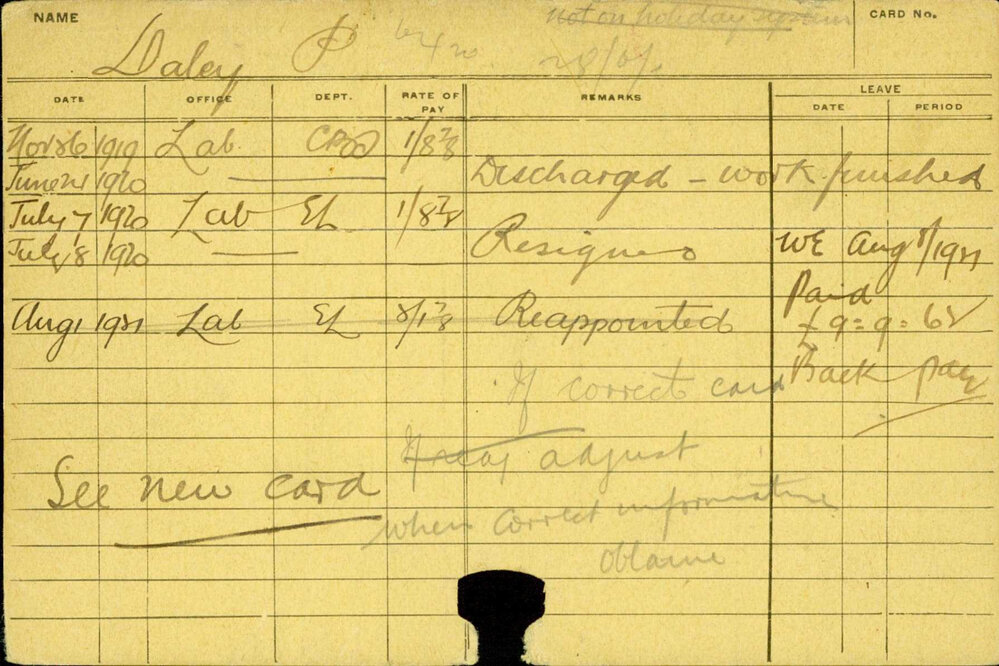 NAME Daley P not on holiday system CARD No.
28/6/.
DATE OFFICE DEPT. RATE OF PAY REMARKS LEAVE DATE PERIOD
Nov 26 1919 Lab. 1/8 7/8
June 21 1920 Discharged - work finished
July 7 1920 Lab EL 1/8 7/8
July 8 1920 Resigned WE Aug 1921
Paid
Aug 1 1921 Lab EL 2/1 7/8 Reappointed £9=9=6
If correct card Back pay
adjust
See new card
when correct information
obtaine